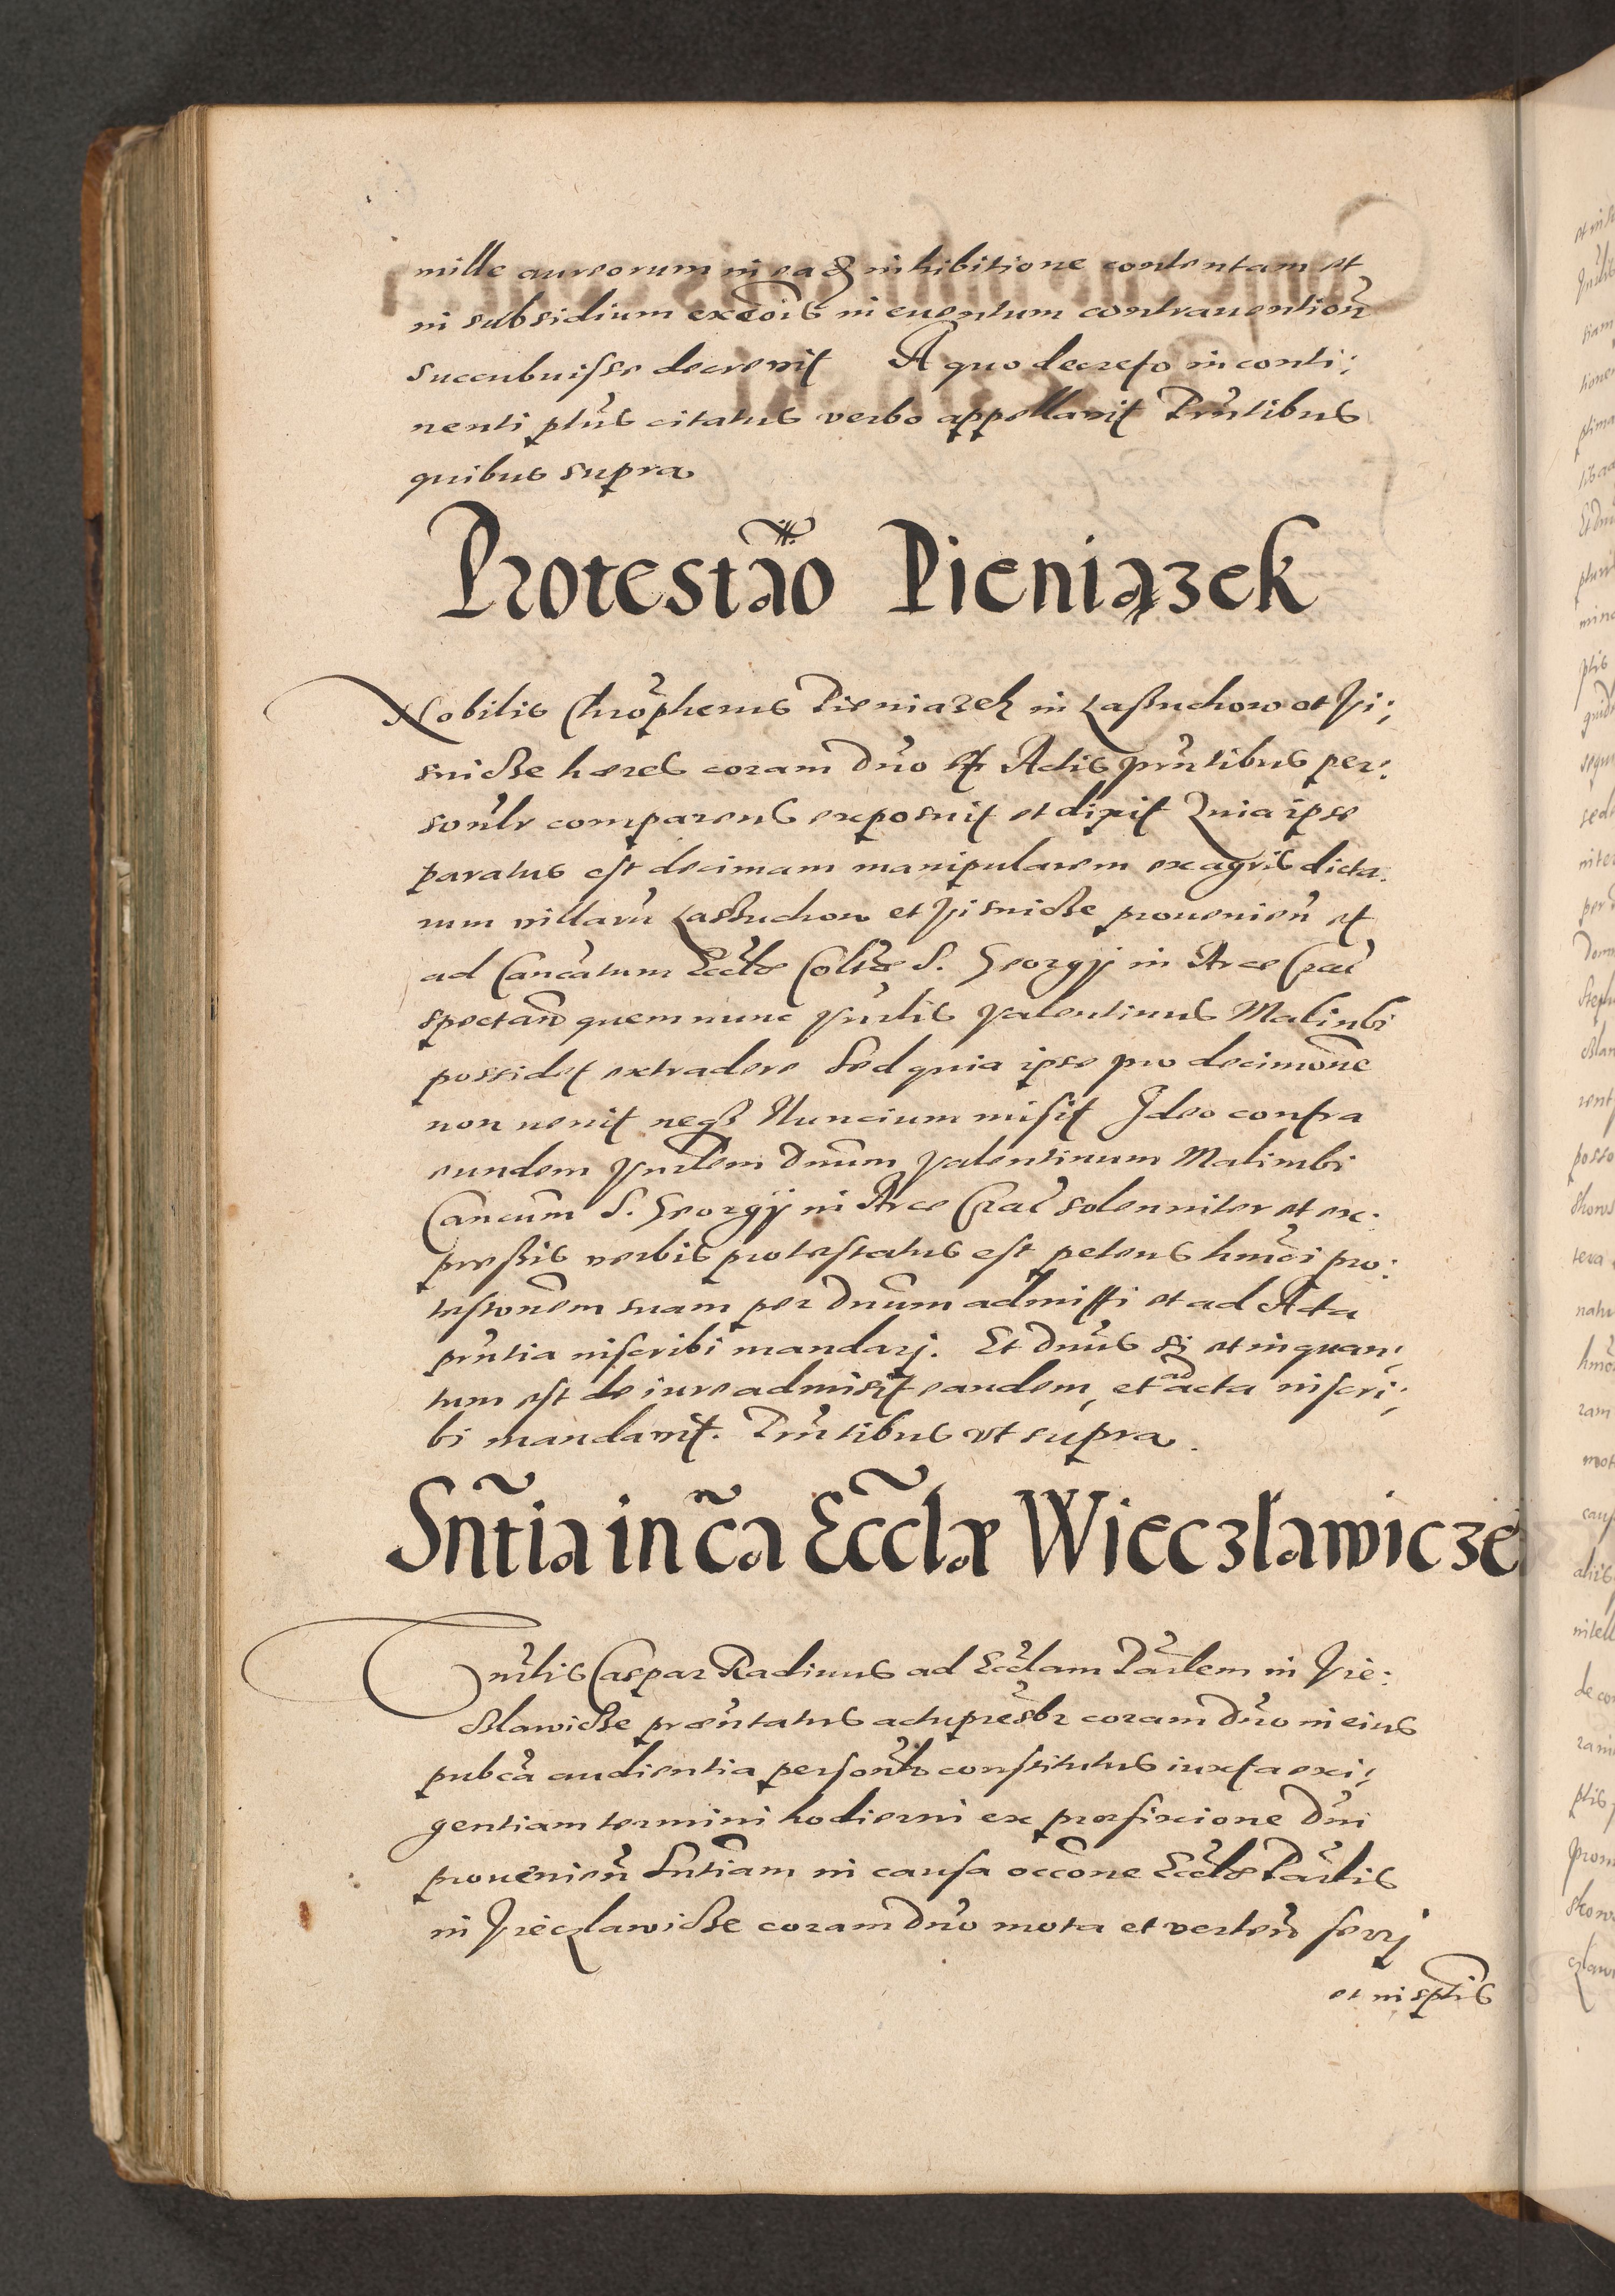 mille aureorum in ea & inhibitione contentam et
in subsidium exc̃õis in euentum contrauention̄
succubuisse decreuit A quo decreto in conti;
nenti pt̃us citatus verbo appellauit Pñtibus
quibus supra
Protestã̃o Pieniązek
Nobilis Chrõpherus Pieniazek in Lassuchow et Vi;
snicze hæres coram Dño et Actis pñtibus per;
sonl̃r comparens exposuit et dixit Quia ipse
paratus est decimam manipularem ex agris dicta.
rum villarũ Lassuchow et Visnicze prouenien̄ et
ad Cancãtum Eccl̃æ Col̃tæ S. Georgÿ in Arce Crac̃
spectan̄ quem nunc Vn̄lis Valentinus Malinbi
possidet extradere Sed quia ipse pro decimõne
non uenit neq3 Nuncium misit Ideo contra
eundem Vn̄lem Dnūm Valentinum Malimbi
Cancūm S. Georgÿ in Arce Crac̃ solenniter et ex.
pressis verbis protestatus est petens hmõi pro;
testõnem suam per Dnūm admitti et ad Acta
pñtia inscribi mandarj. Et Dnūs si et inquan;
tum est de iure admisit eandem, et ad acta inscri;
bi mandauit. Pñtibus vt supra.
Sñtia in c̃a Eccl̃æ Wieczlawicze
Vn̄lis Caspar Radinus ad Eccl̃am Parl̃em in Vie;
czlawicze præñtatus actu præsb̃r coram Dño in eius
pubc̃a audientia personl̃r constitutus iuxta exi;
gentiam termini hodierni ex præfixione Dñi
prouenien̄ Sñtiam in causa occõne Eccl̃æ Parl̃is
in Vieczlawicze coram Dño mota et verten̄ ferrj
et in sptis